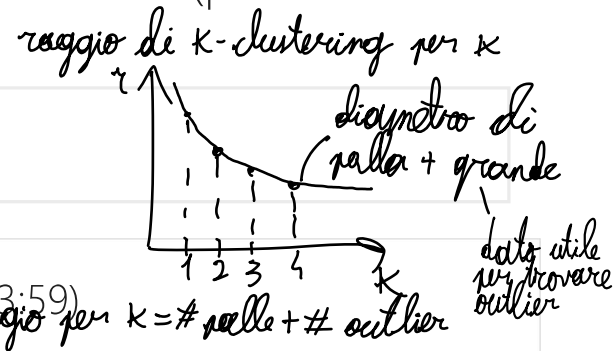 raggio di K-clustering per K
r
diametro di
palla + grande
dato utile
per trovare
outlier
1 2 3 4
K
3:59)
gio per K = # palle + # outlier